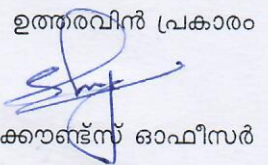 ഉത്തരവിൻ പ്രകാരം
ക്കൗണ്ട്സ് ഓഫീസർ